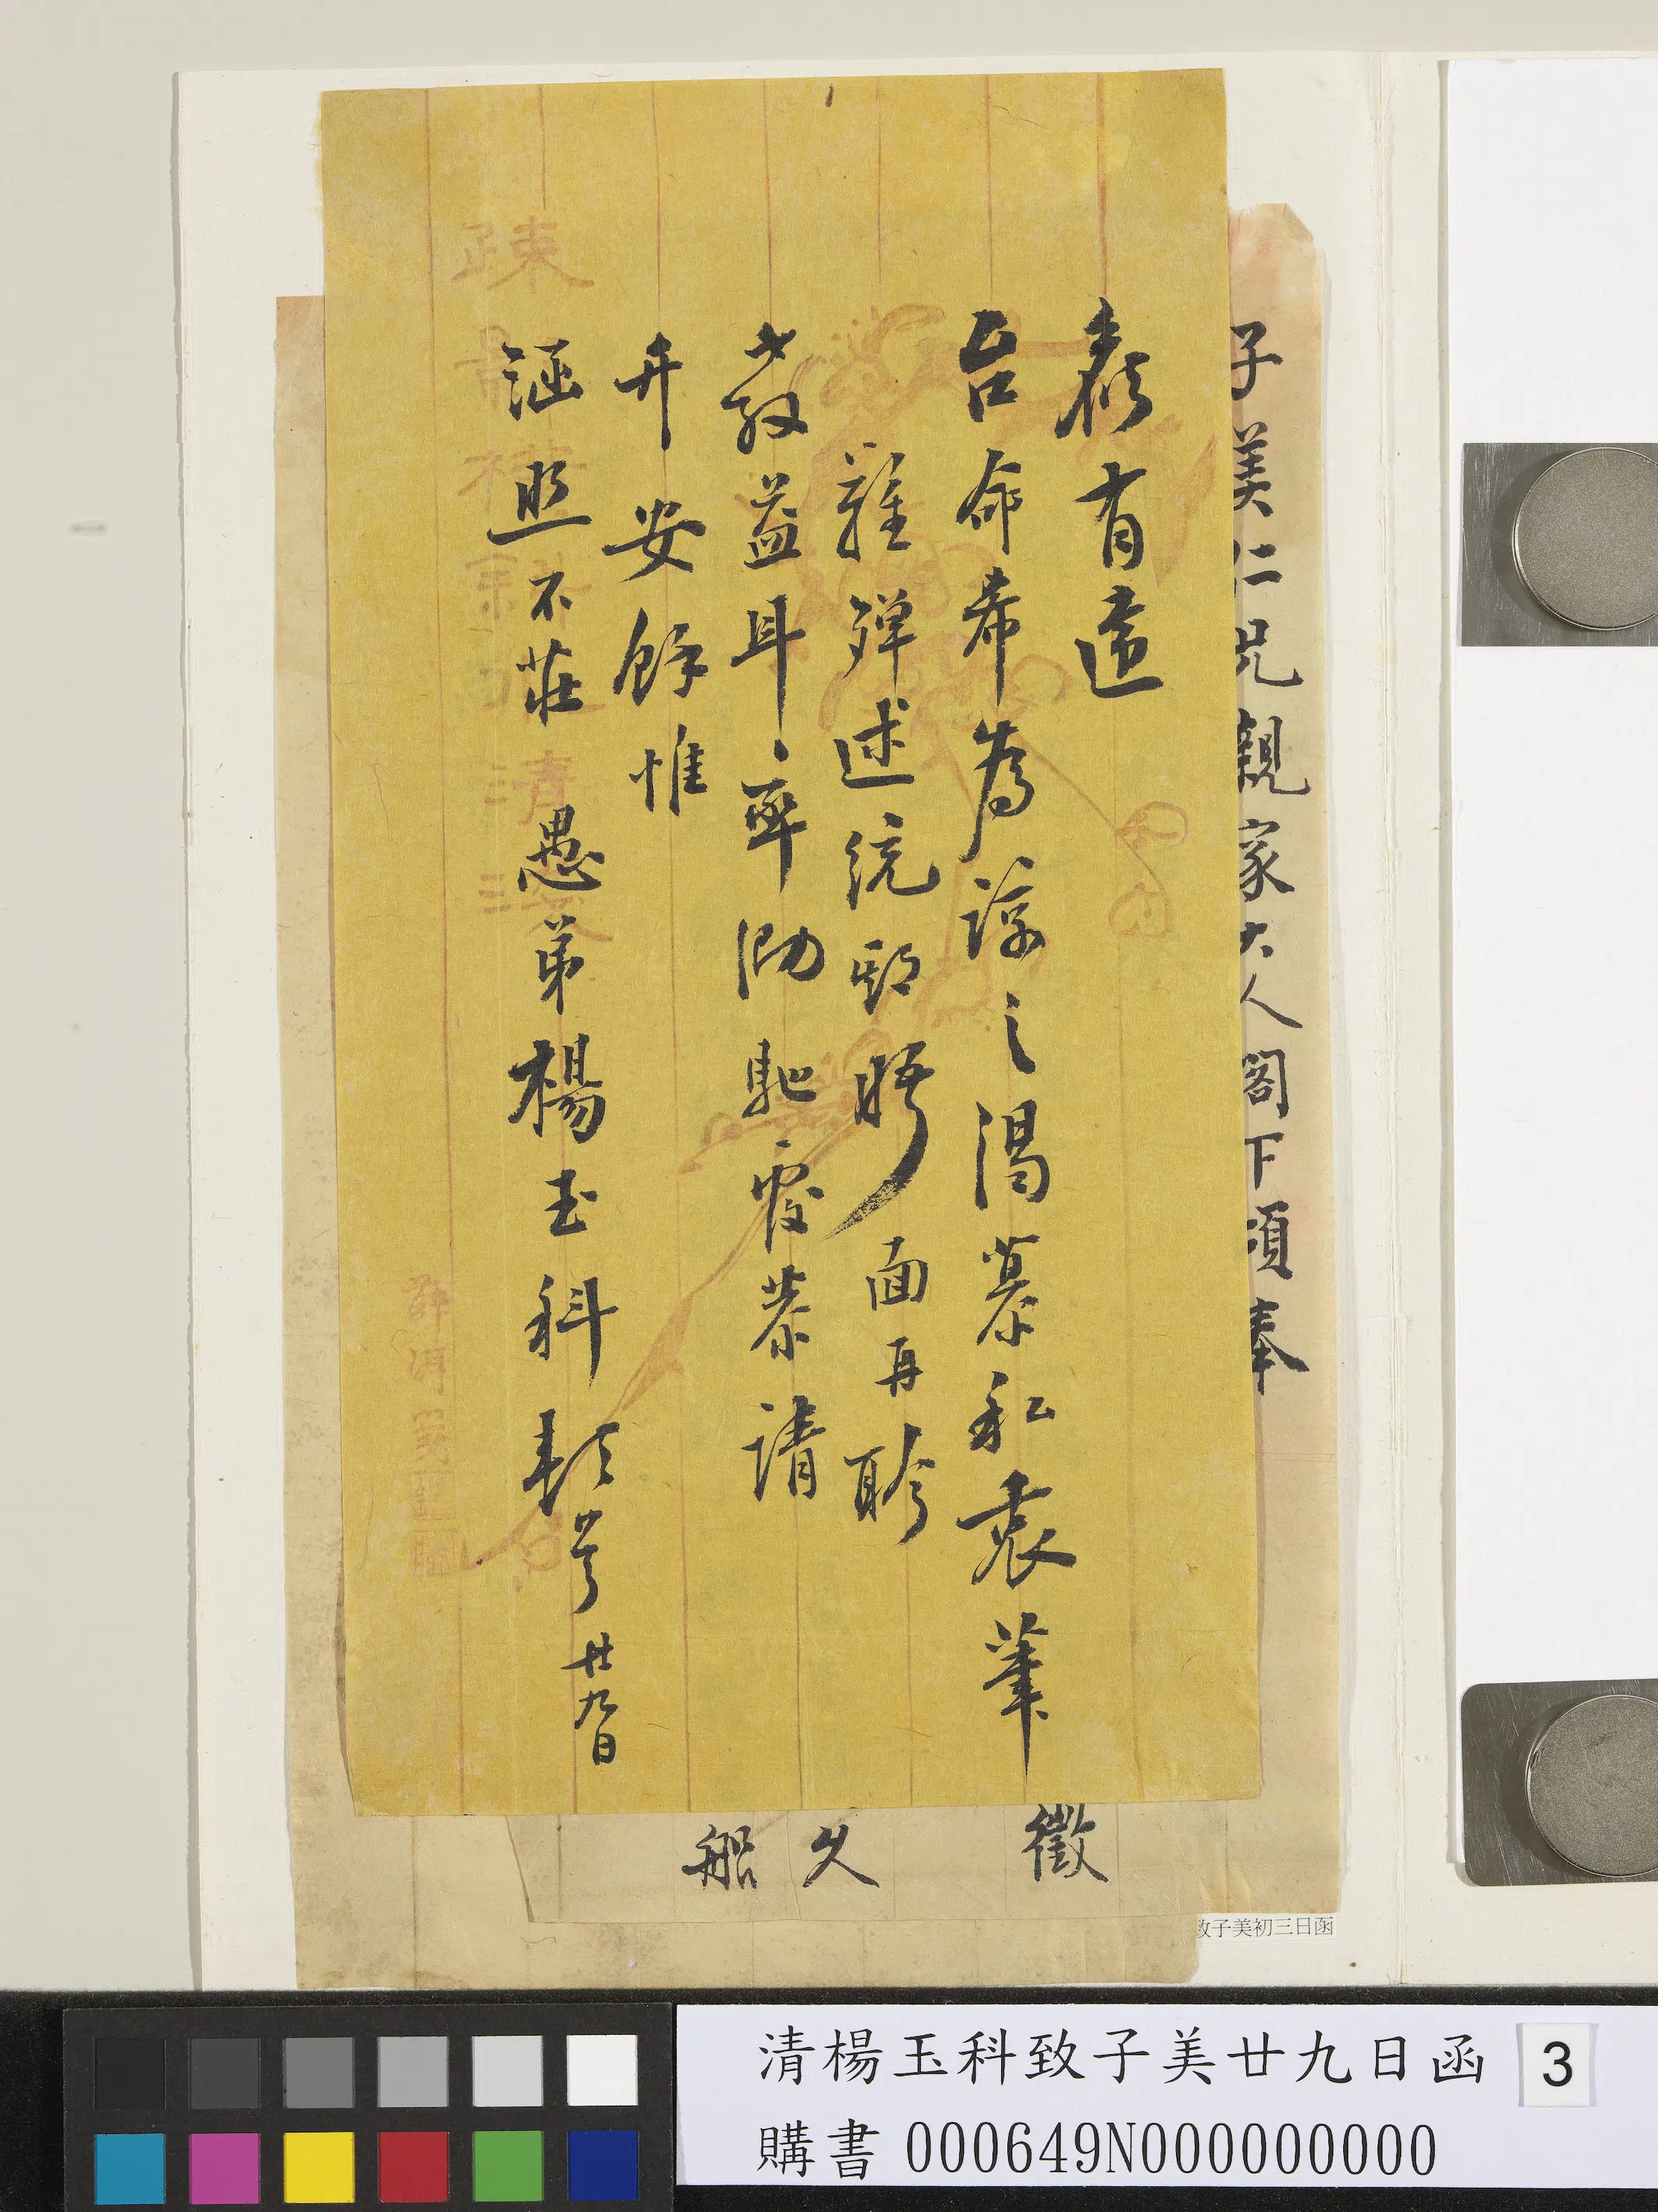 子美仁兄親家大人閣下頃奉
有違
台命希為諒之渴慕私衷筆
難殫述統期晤面再聆
教益耳率泐馳覆恭請
升安餘惟
涵照不莊 愚弟楊玉科頓首 廿九日
疎影橫斜水清淺
徵
久
船
致子美初三日函
清楊玉科致子美廿九日函 3
購書 000649N000000000